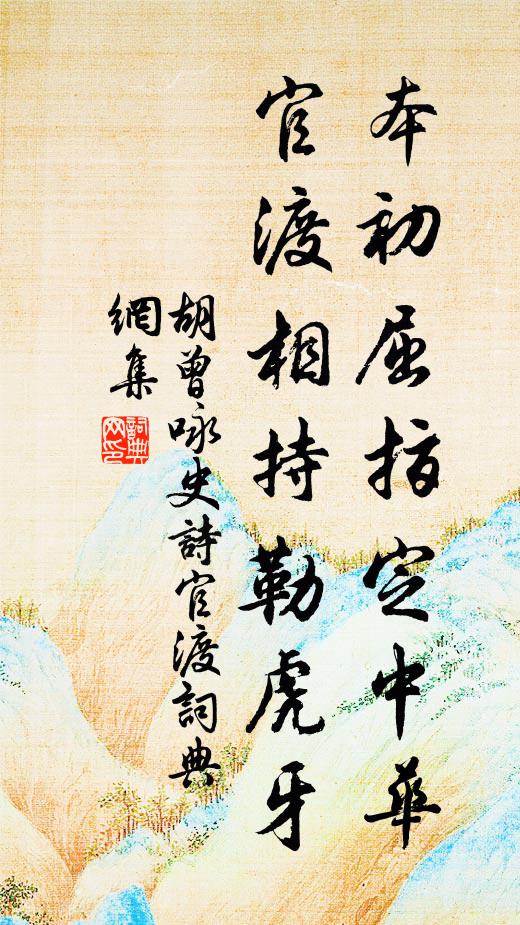 本初屈指定中華
官渡相持勒虎牙
胡曾咏史詩官渡詞典
網集
詞典
网印